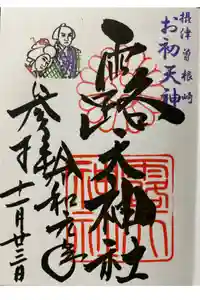 摂津 曽根崎
お初天神
露天神社
参拝 令和元年
十一月廿三日